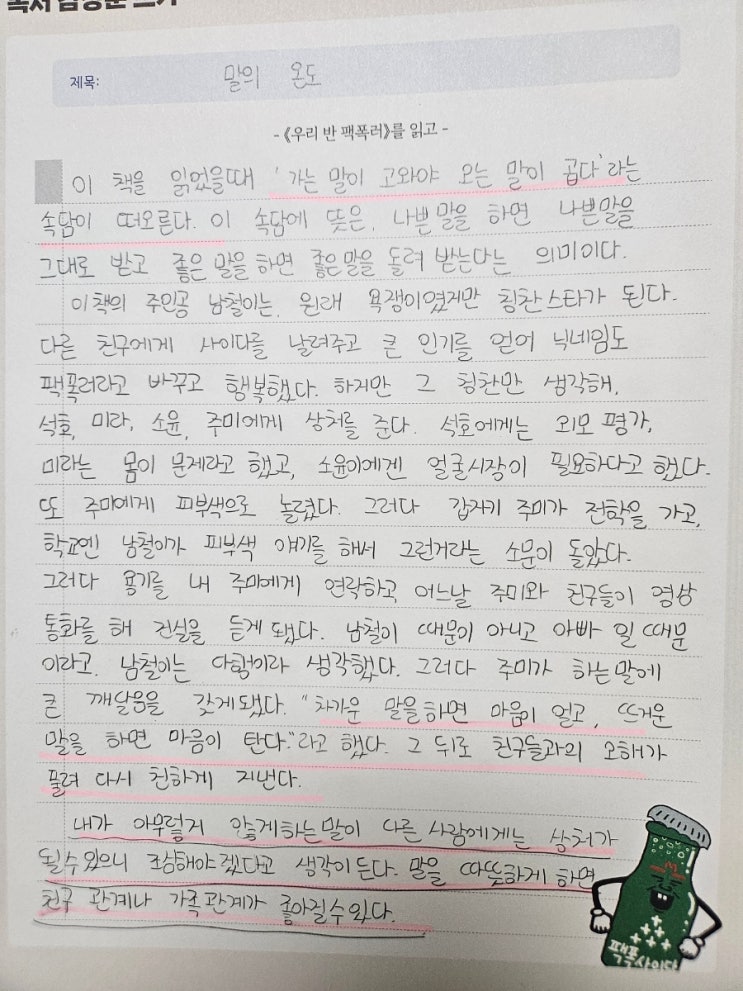 제목: 말의 온도
-《우리 반 팩폭러》를 읽고-
이 책을 읽었을때 '가는 말이 고와야 오는 말이 곱다'라는
속담이 떠오른다. 이 속담에 뜻은, 나쁜말을 하면 나쁜말을
그대로 받고 좋은 말을 하면 좋은말을 돌려 받는다는 의미이다.
이책의 주인공 남철이는, 원래 욕쟁이였지만 칭찬스타가 된다.
다른 친구에게 사이다를 날려주고 큰 인기를 얻어 닉네임도
팩폭러라고 바꾸고 행복했다. 하지만 그 칭찬만 생각해,
석호, 미라, 소윤, 주미에게 상처를 준다. 석호에게는 외모 평가,
미라는 몸이 문제라고 했고, 소윤이에겐 얼굴시장이 필요하다고 했다.
또 주미에게 피부색으로 놀렸다. 그러다 갑자기 주미가 전학을 가고,
학교엔 남철이가 피부색 얘기를 해서 그런거라는 소문이 돌았다.
그러다 용기를 내 주미에게 연락하고 어느날 주미와 친구들이 영상
통화를 해 진실을 듣게 됐다. 남철이 때문이 아니고 아빠 일 때문
이라고. 남철이는 다행이라 생각했다. 그러다 주미가 하는말에
큰 깨달음을 갖게됐다. "차가운 말을하면 마음이 얼고, 뜨거운
말을 하면 마음이 탄다."라고 했다. 그 뒤로 친구들과의 오해가
풀려 다시 친하게 지낸다.
내가 아무렇게 않게하는말이 다른 사람에게는 상처가
될수있으니 조심해야겠다고 생각이든다. 말을 따뜻하게 하면
친구 관계나 가족관계가 좋아질수있다.
팩폭사이다